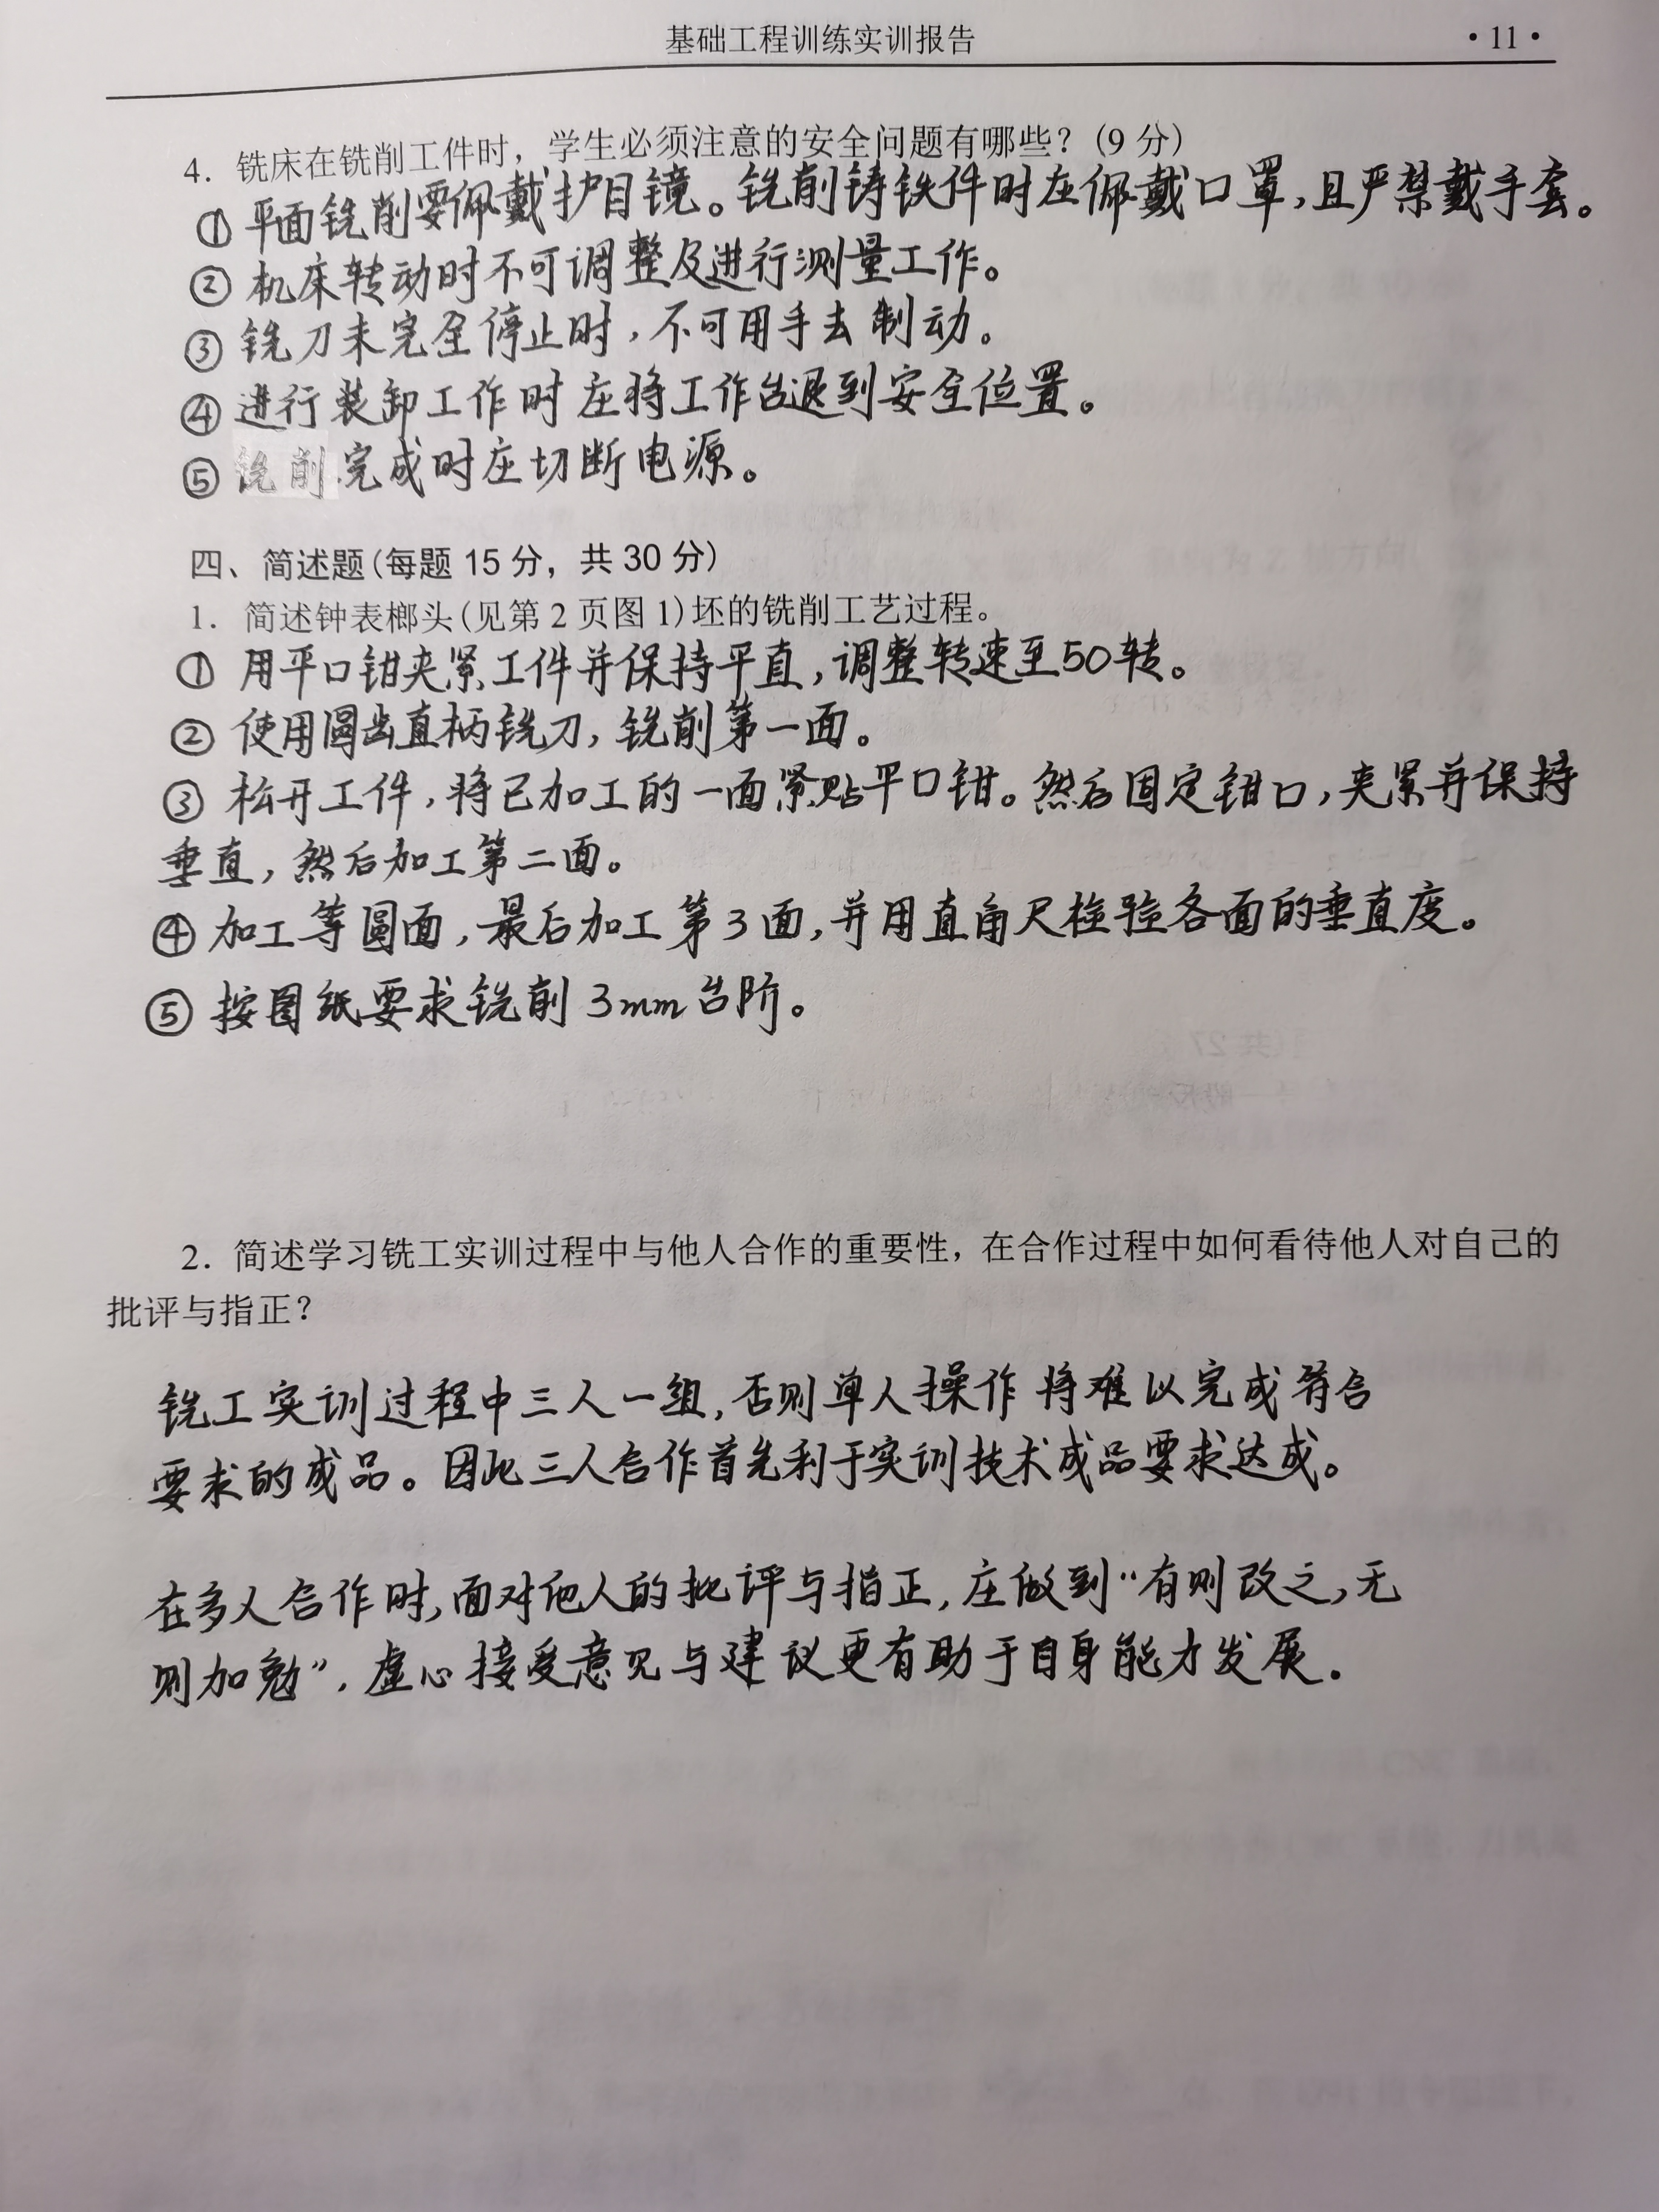 基础工程训练实训报告 ·11·
4. 铣床在铣削工件时，学生必须注意的安全问题有哪些？(9 分)
① 平面铣削要佩戴护目镜。铣削铸铁件时应佩戴口罩，且严禁戴手套。
② 机床转动时不可调整及进行测量工作。
③ 铣刀未完全停止时，不可用手去制动。
④ 进行装卸工作时应将工作台退到安全位置。
⑤ 铣削完成时应切断电源。
四、简述题(每题 15 分，共 30 分)
1. 简述钟表榔头(见第 2 页图 1)坯的铣削工艺过程。
① 用平口钳夹紧工件并保持平直，调整转速至50转。
② 使用圆齿直柄铣刀，铣削第一面。
③ 松开工件，将已加工的一面紧贴平口钳。然后固定钳口，夹紧并保持
垂直，然后加工第二面。
④ 加工等圆面，最后加工第3面，并用直角尺检验各面的垂直度。
⑤ 按图纸要求铣削 3mm台阶。
2. 简述学习铣工实训过程中与他人合作的重要性，在合作过程中如何看待他人对自己的
批评与指正？
铣工实训过程中三人一组，否则单人操作将难以完成符合
要求的成品。因此三人合作首先利于实训技术成品要求达成。
在多人合作时，面对他人的批评与指正，应做到“有则改之，无
则加勉”，虚心接受意见与建议更有助于自身能力发展。